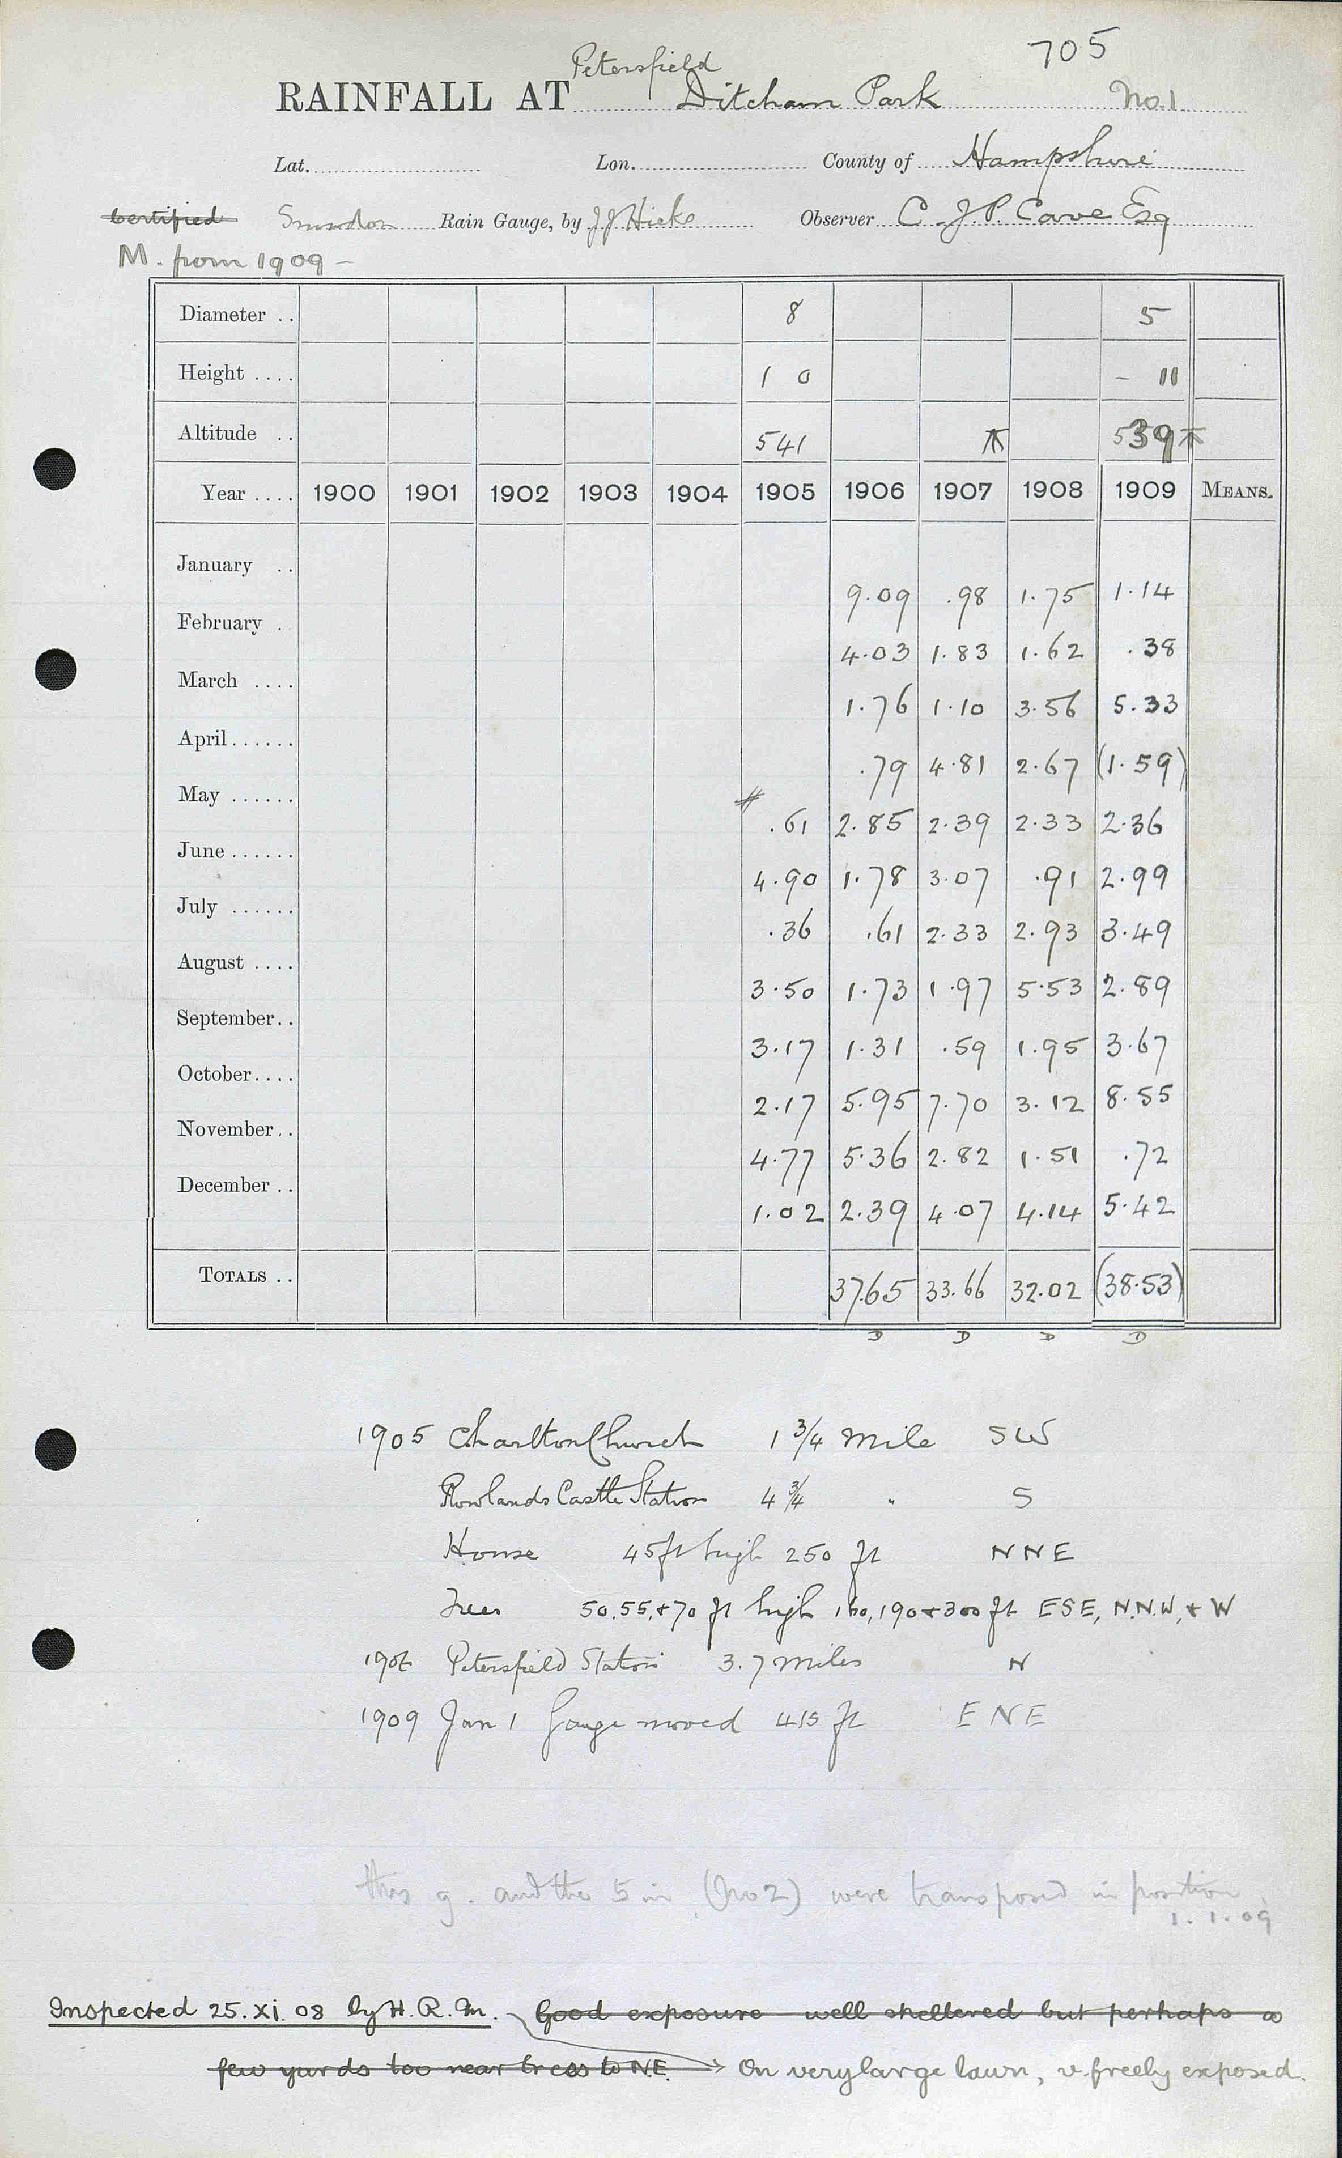 705
Petersfield
RAINFALL AT Ditcham Park No. 1
Lat. Lon. County of Hampshire
Certified Snowdon Rain Gauge, by J J Hicks Observer C. J. P. Cave Esq
M. from 1909 –
Diameter .. 8 5
Height .... 1 0 – 11
Altitude .. 541 539
Year .... 1900 1901 1902 1903 1904 1905 1906 1907 1908 1909 MEANS.
January .. 9.09 .98 1.75 1.14
February . 4.03 1.83 1.62 .38
March .... 1.76 1.10 3.56 5.33
April...... .79 4.81 2.67 (1.59)
May ...... .61 2.85 2.39 2.33 2.36
June ...... 4.90 1.78 3.07 .91 2.99
July ...... .36 .61 2.33 2.93 3.49
August .... 3.50 1.73 1.97 5.53 2.89
September.. 3.17 1.31 .59 1.95 3.67
October.... 2.17 5.95 7.70 3.12 8.55
November.. 4.77 5.36 2.82 1.51 .72
December .. 1.02 2.39 4.07 4.14 5.42
TOTALS .. 37.65 33.66 32.02 (38.53)
D D D D
1905 Charlton Church 1 3/4 Mile SW
Rowlands Castle Station 4 3/4 " S
House 45 ft high 250 ft NNE
Trees 50, 55, & 70 ft high 160, 190 & 300 ft ESE, N.N.W, & W
1906 Petersfield Station 3.7 miles N
1909 Jan 1 Gauge moved 415 ft ENE
this g. and the 5 in (No 2) were transposed in position
1.1.09
Inspected 25.XI.08 by H.R.M. Good exposure well sheltered but perhaps a
few yards too near trees to N.E. On very large lawn, v. freely exposed.